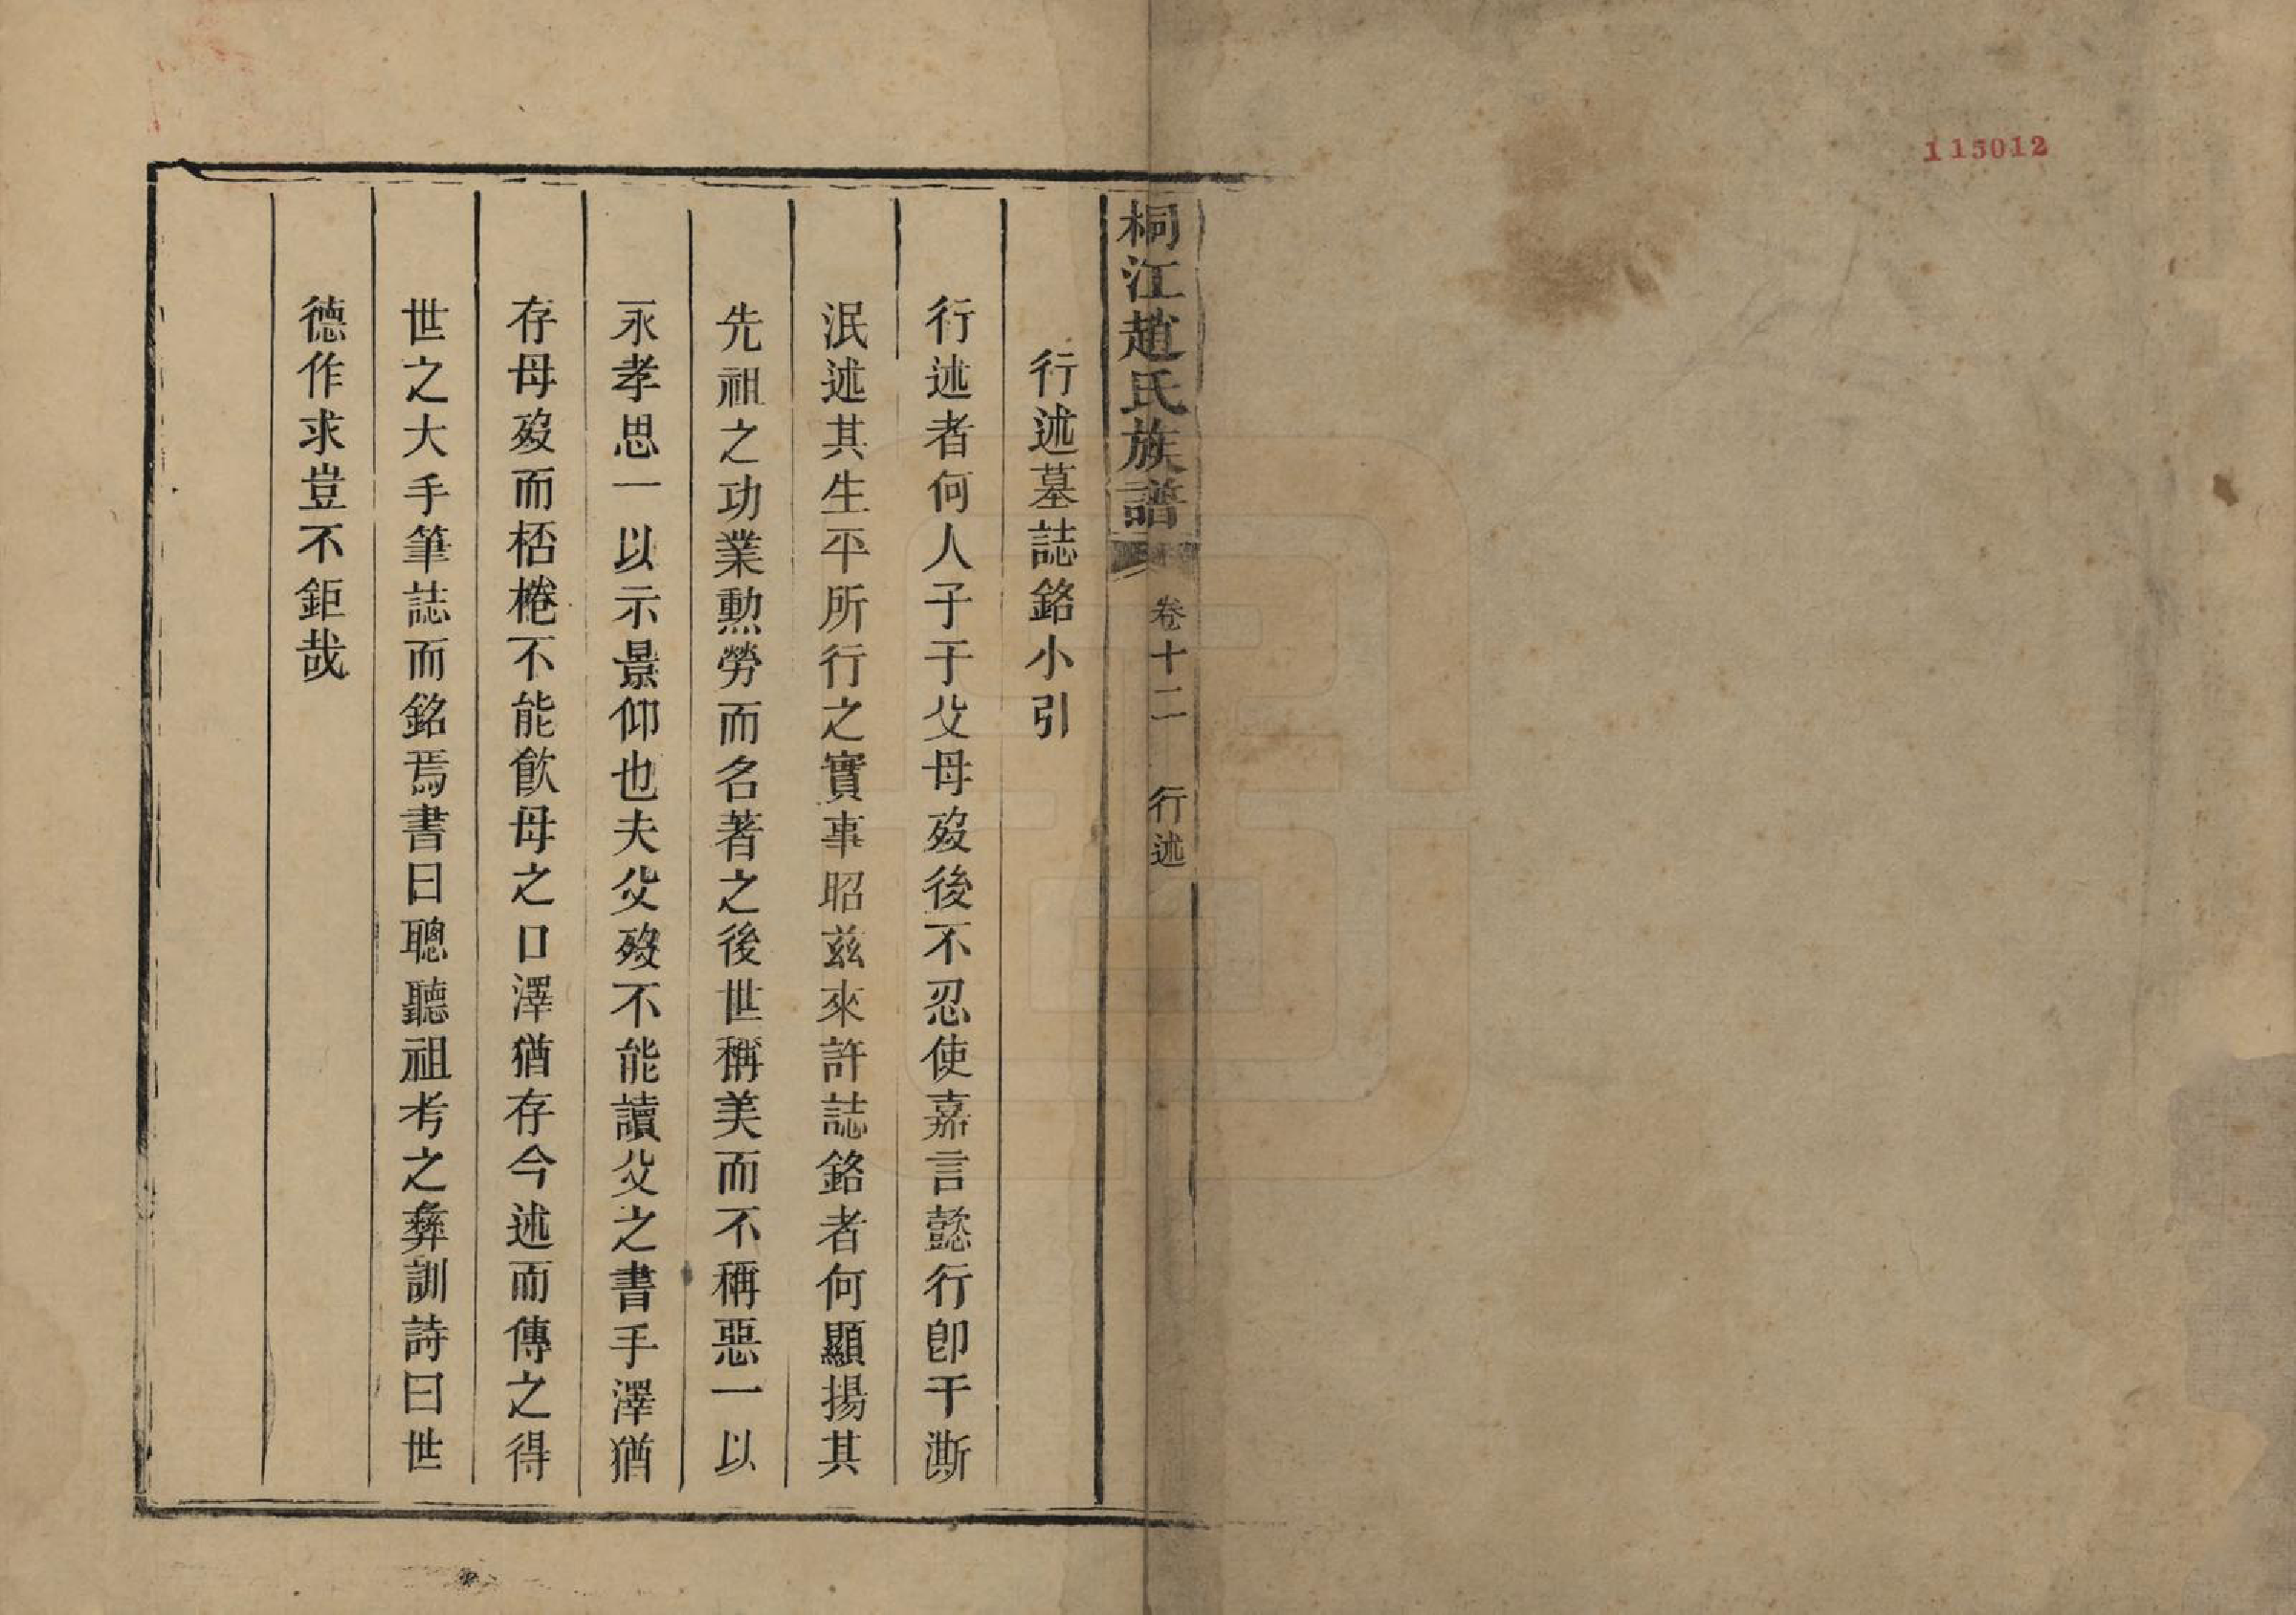 115012
桐江趙氏族譜 卷十二 行述
行述墓誌銘小引
行述者何人子于父母歿後不忍使嘉言懿行卽于澌
泯述其生平所行之實事昭兹來許誌銘者何顯揚其
先祖之功業勲勞而名著之後世稱美而不稱惡一以
永孝思一以示景仰也夫父歿不能讀父之書手澤猶
存母歿而桮棬不能飲母之口澤猶存今述而傳之得
世之大手筆誌而銘焉書曰聰聽祖考之彝訓詩曰世
德作求豈不鉅哉